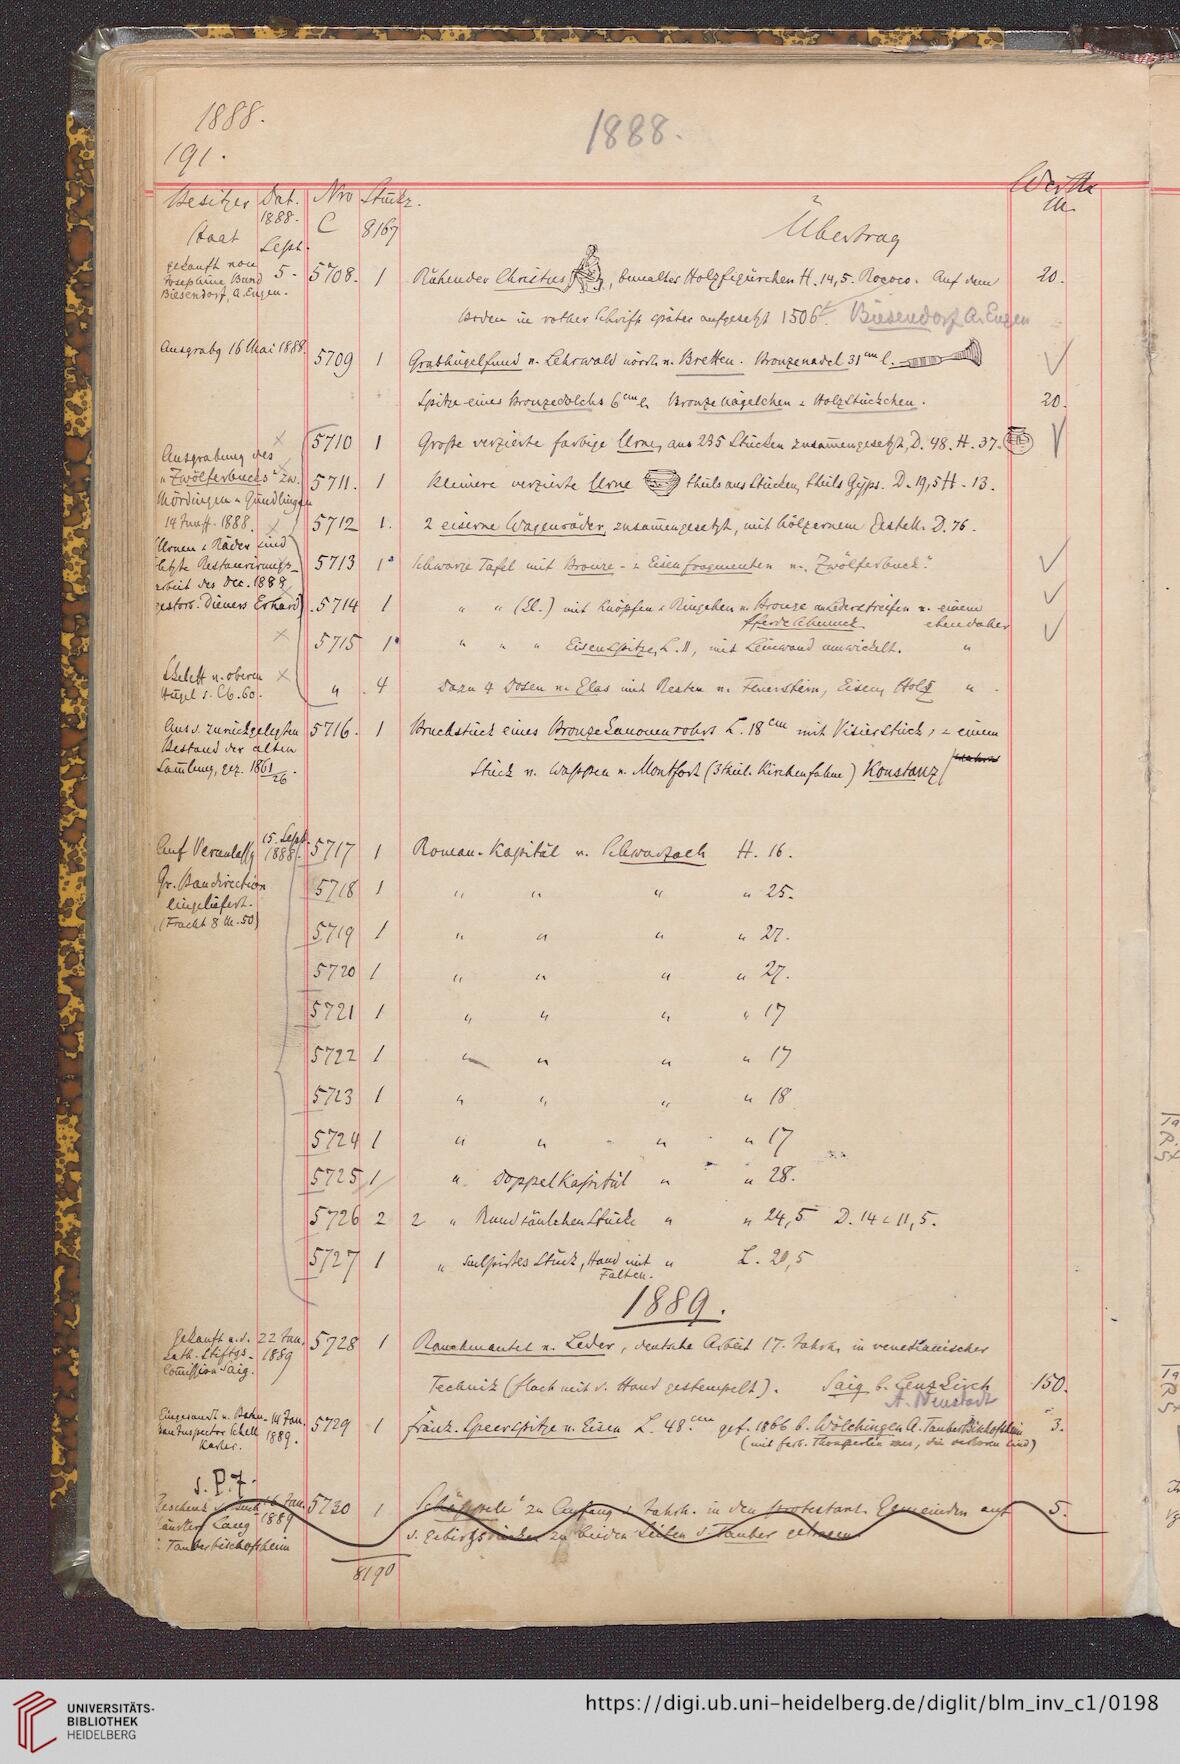 1888.
191.
1888.
Besitzer Dat. Nro Stückz. Werth
Staat 1888. C 8167 Übertrag M.
Sept.
gekauft von Josephine Bund Biesendorf, A. Engen. 5. 5708. 1 Ruhender Christus, bemaltes Holzfigürchen H. 14,5. Rococo. Auf dem 20.
Boden in rother Schrift später aufgesetzt 1506. Biesendorf A. Engen
Ausgrabg 16 Mai 1888. 5709 1 Grabhügelfund v. Lehrwald nördl. v. Bretten. Bronzenadel 31 cm l.
Spitze eines Bronzedolchs 6 cm l. Bronzenägelchen u. Holzstückchen. 20.
Ausgrabung des 5710 1 Große verzierte farbige Urne, aus 235 Stücken zusammengesetzt, D. 48. H. 37.
"Zwölferbucks" zw. 5711. 1 Kleinere verzierte Urne theils aus Stücken, theils Gyps. D. 19,5 H. 13.
Mördingen u. Gündlingen
14 Juni 1888. 5712 1. 2 eiserne Wagenräder, zusammengesetzt, mit hölzernem Gestell. D. 76.
Urnen u. Räder sind
letzte Restaurirungs- 5713 1 Schwarze Tafel mit Bronze- u. Eisenfragmenten v. "Zwölferbuck".
arbeit des Dec. 1888
gestorb. Dieners Erhard 5714 1 " " (Kl.) mit Knöpfen u. Ringchen v. Bronze an Lederstreifen v. einem
Pferdeschmuck. ebendaher
5715 1 " " " Eisenspitze, L. 11, mit Leinwand umwickelt. "
Skelett v. oberen " 4 Dazu 4 Dosen v. Glas mit Resten v. Feuerstein, Eisen, Holz "
Hügel s. C6.60.
Aus d. zurückgelegten 5716. 1 Bruchstück eines Bronzekanonenrohrs L. 18 cm mit Visierstück, u. einem
Bestand der alten
Samlung, gez. 1861/26. Stück v. Wappen v. Montfort (3theil. Kirchenfahne) Konstanz
Auf Veranlassg 15. Sept. 1888. 5717 1 Roman. Kapitäl v. Schwarzach H. 16.
Gr. Baudirection 5718 1 " " " " 25.
eingeliefert.
(Fracht 8 M. 50) 5719 1 " " " " 27.
5720 1 " " " " 27.
5721 1 " " " " 17
5722 1 " " " " 17
5723 1 " " " " 18
5724 1 " " " " 17
5725 1 " Doppelkapitäl " " 28.
5726 2 2 " Rundsäulchenstücke " " 24,5 D. 14 u. 11,5.
5727 1 " sculpirtes Stück, Hand mit " L. 20,5
Falten.
1889.
gekauft v. d. 22 Jan. 5728 1 Rauchmantel v. Leder, deutsche Arbeit 17. Jahrh. in venetianischer
kath. Stiftgs- 1889
Comission Saig. Technik (flach mit d. Hand gestempelt). Saig b. Lenzkirch 150.
A. Neustadt
Eingesandt v. Bahn- 14 Jan. 5729 1 Fränk. Speerspitze v. Eisen L. 48. cm gef. 1866 b. Wölchingen A. Tauberbischofsheim 3.
bauinspector Schell 1889. (mit farb. Thonperlen, die verloren sind)
s. P. 7.
Geschenk 16 Jan. 5730 1 "Schäppele" zu Anfang d. Jahrh. in den protestant. Gemeinden auf 5.
Lang 1889 d. Gebirgsrücken zu beiden Seiten d. Tauber getragen.
Tauberbischofsheim
8190
UNIVERSITÄTS-
BIBLIOTHEK
HEIDELBERG
https://digi.ub.uni-heidelberg.de/diglit/blm_inv_c1/0198